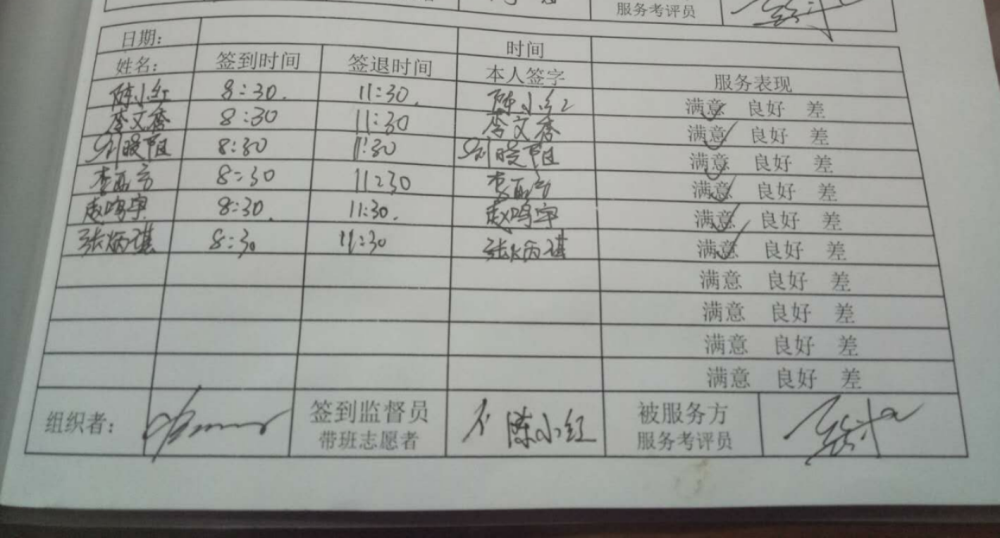 服务考评员
日期: 时间
姓名: 签到时间 签退时间 本人签字 服务表现
陈小红 8:30. 11:30. 陈小红 满意 良好 差
李文香 8:30 11:30 李文香 满意 良好 差
刘晓阳 8:30 11:30 刘晓阳 满意 良好 差
8:30 11:30 满意 良好 差
赵鸣宇 8:30. 11:30. 赵鸣宇 满意 良好 差
张炳祺 8:30 11:30 张炳祺 满意 良好 差
满意 良好 差
满意 良好 差
满意 良好 差
满意 良好 差
组织者: 签到监督员 陈小红 被服务方
带班志愿者 服务考评员